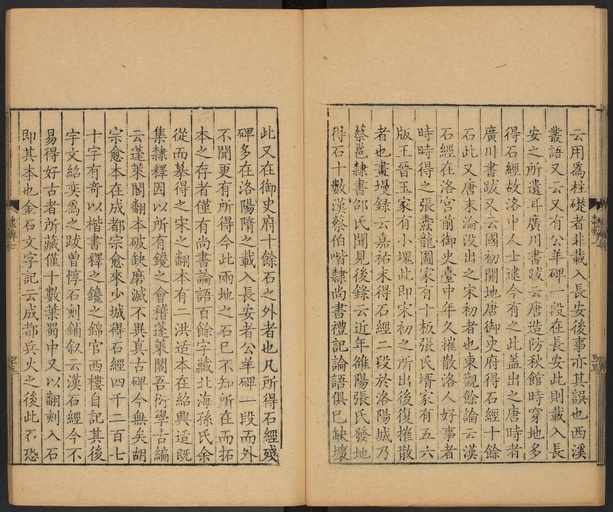 云用為柱礎者非載入長安後事亦其誤也西溪
叢語又云又有公羊碑一段在長安此則載入長
安之所遺耳廣川書跋云唐造防秋館時穿地多
得石經故洛中人士逮今有之此盖出之唐時者
廣川書跋又云國初開地唐御史府得石經十餘
石此又唐末淪沒出之宋初者也東觀餘論云漢
石經在洛宮前御史臺中年久摧散洛人好事者
時時得之張燾龍圖家有十板張氏壻家有五六
版王晉玉家有小塊此即宋初之所出後復摧散
者也畫墁錄云嘉祐末得石經二段於洛陽城乃
蔡邕隸書邵氏聞見後錄云近年雒陽張氏發地
得石十數漢蔡伯喈隸尚書禮記論語俱已缺壞
此又在御史府十餘石之外者也凡所得石經殘
碑多在洛陽隋之載入長安者公羊碑一段而外
不聞更有所得今此兩地之石已不知所在而拓
本之存者僅有尚書論語百餘字藏北海孫氏余
從而摹得之宋之翻本有二洪适本在紹興适既
集隸釋因以所有鑱之會稽蓬萊閣吾衍學古編
云蓬萊閣翻本破缺磨滅不異真古碑今無矣胡
宗愈本在成都宗愈來少城得石經四千二百七
十字有奇以楷書釋之鑱之錦官西樓自記其後
宇文紹奕為之跋曾惇石刻鋪叙云漢石經今不
易得好古者所藏僅十數葉蜀中又以翻刻入石
即其本也金石文字記云成都兵火之後此石恐